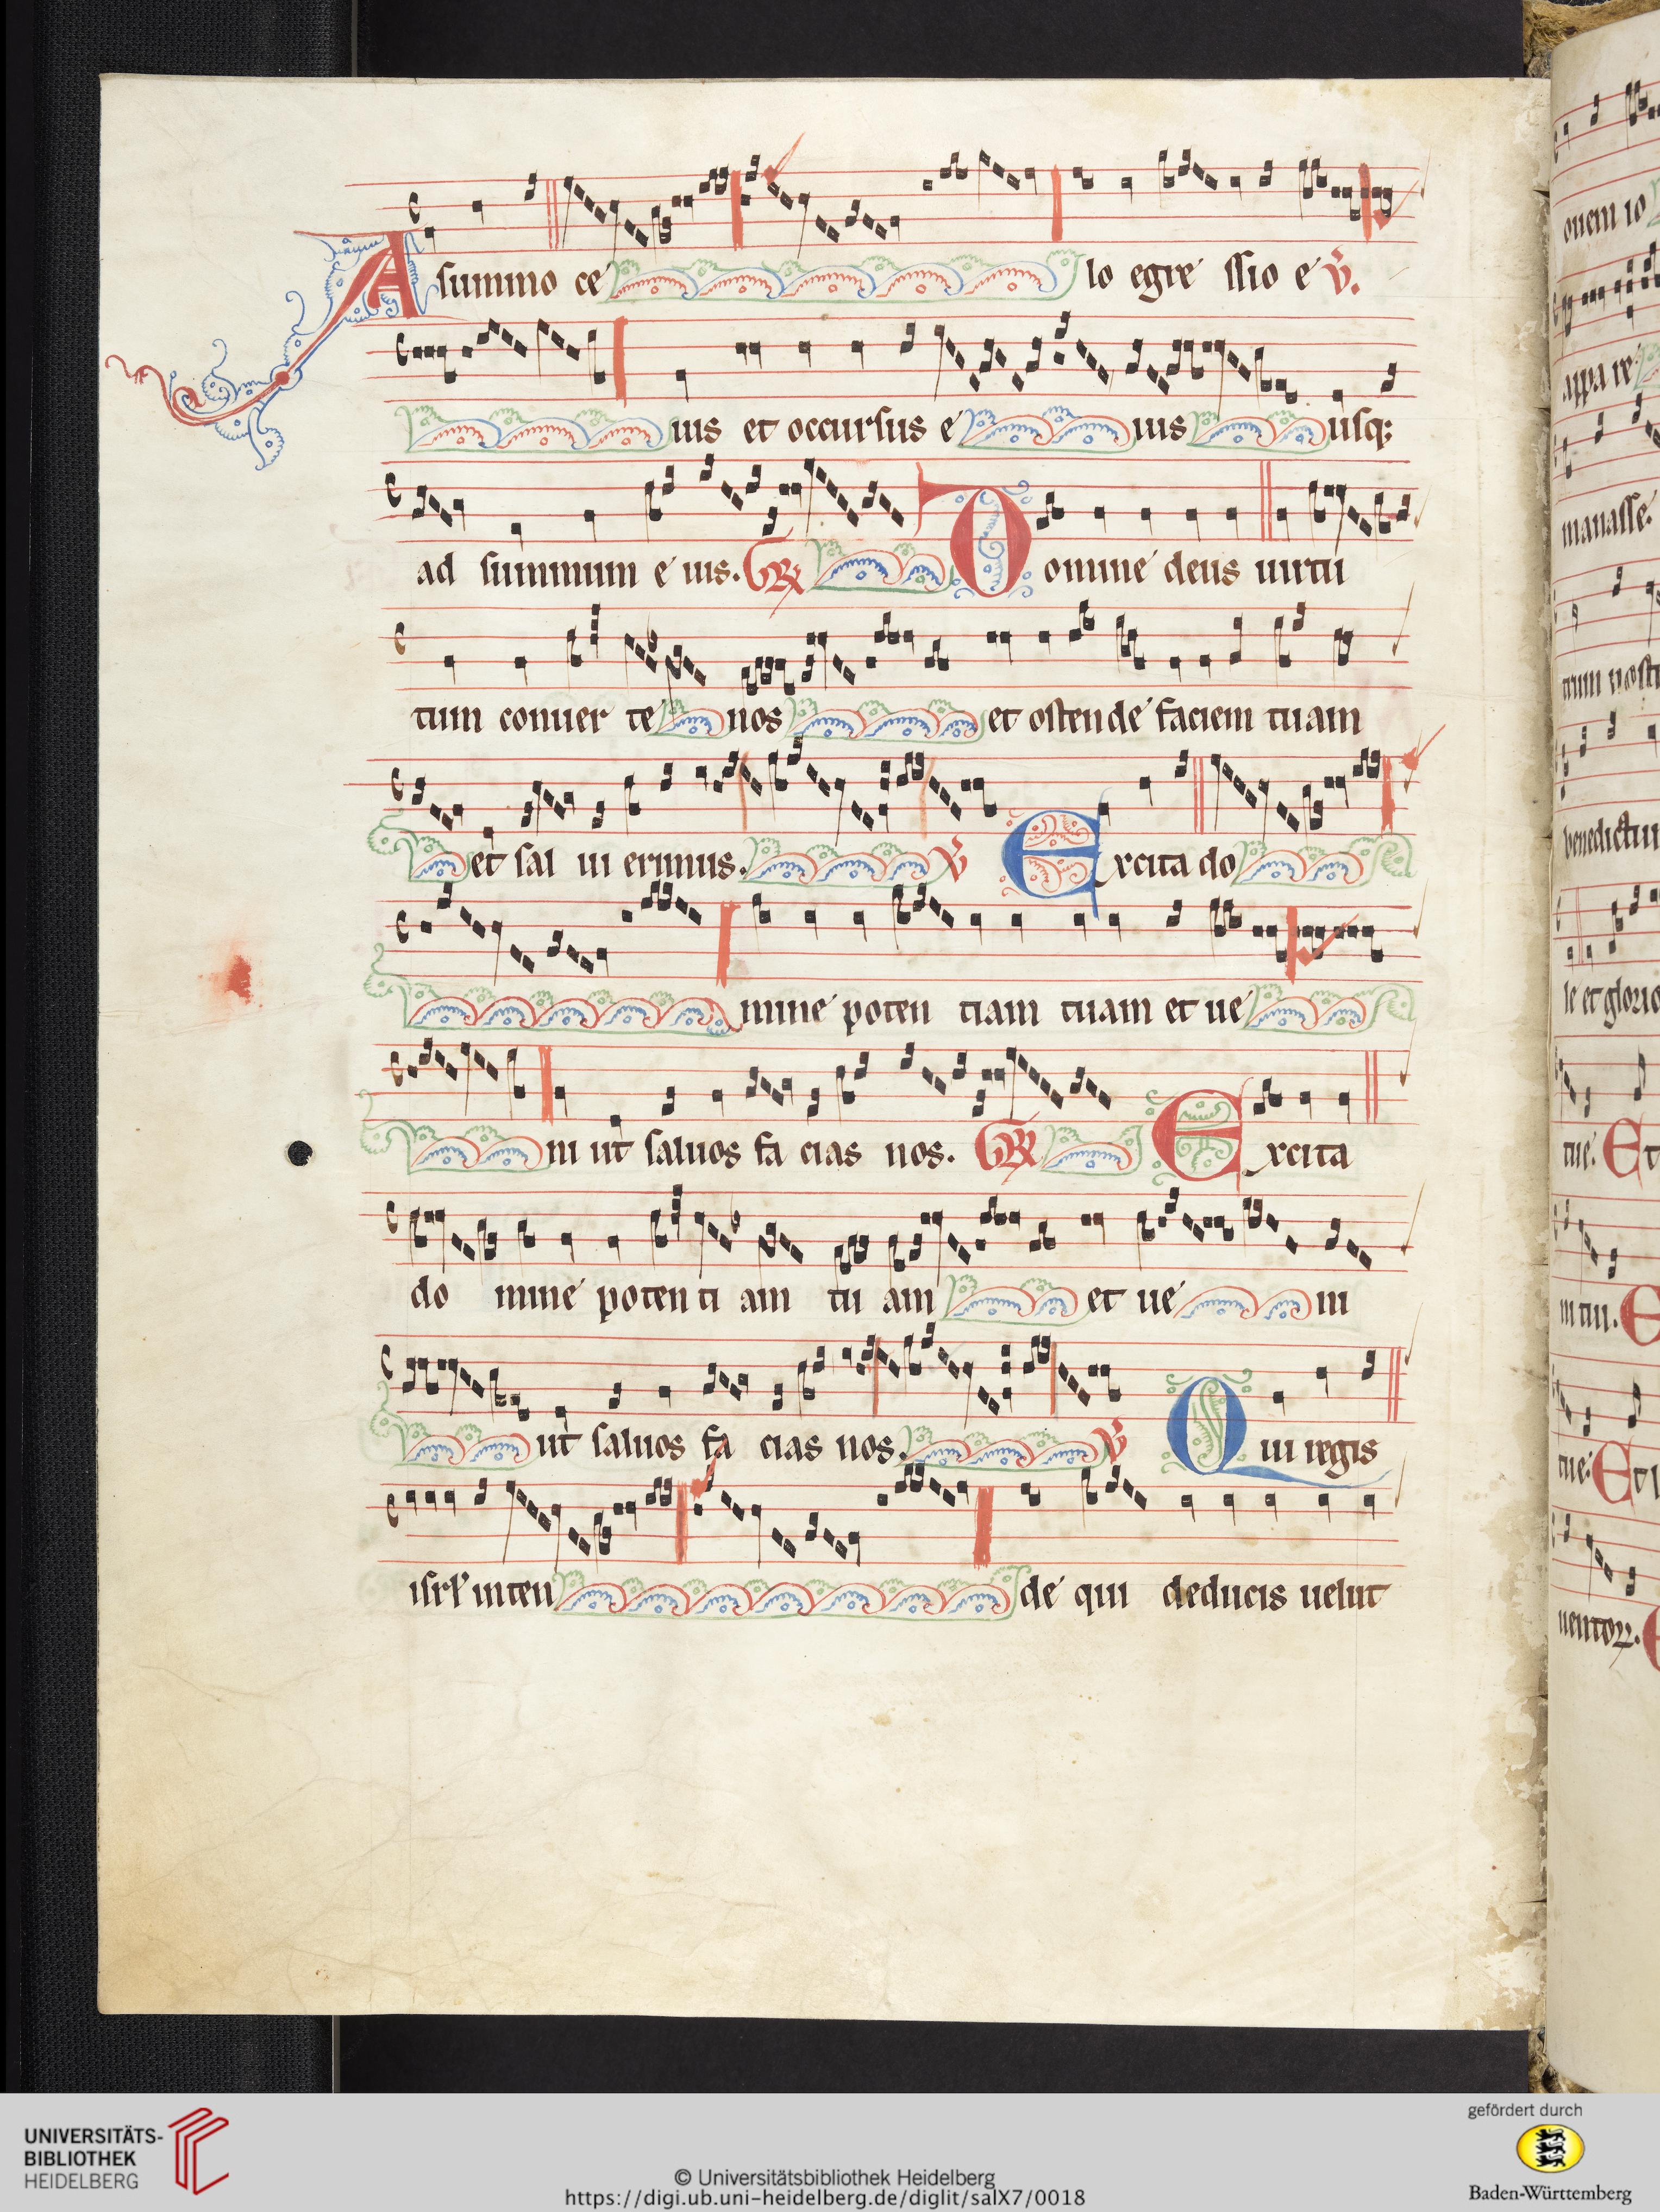 A summo ce lo egre ssio e V̄.
ius et occursus e ius usq;
ad summum e ius. GR Domine deus uirtu
tum conuer te nos et ostende faciem tuam
et sal ui erimus. V̄ Excita do
mine poten tiam tuam et ue
ni ut saluos fa cias nos. GR Excita
do mine potenti am tu am et ue ni
ut saluos fa cias nos. V̄ Qui regis
isrl' inten de qui deducis uelut
onem io
appare
manasse.
trum nostr
benedictu
le et glorio
tue. Et
in tui. E
tue: Et
uentoꝝ. E
UNIVERSITÄTS-
BIBLIOTHEK
HEIDELBERG
© Universitätsbibliothek Heidelberg
https://digi.ub.uni-heidelberg.de/diglit/salX7/0018
gefördert durch
Baden-Württemberg